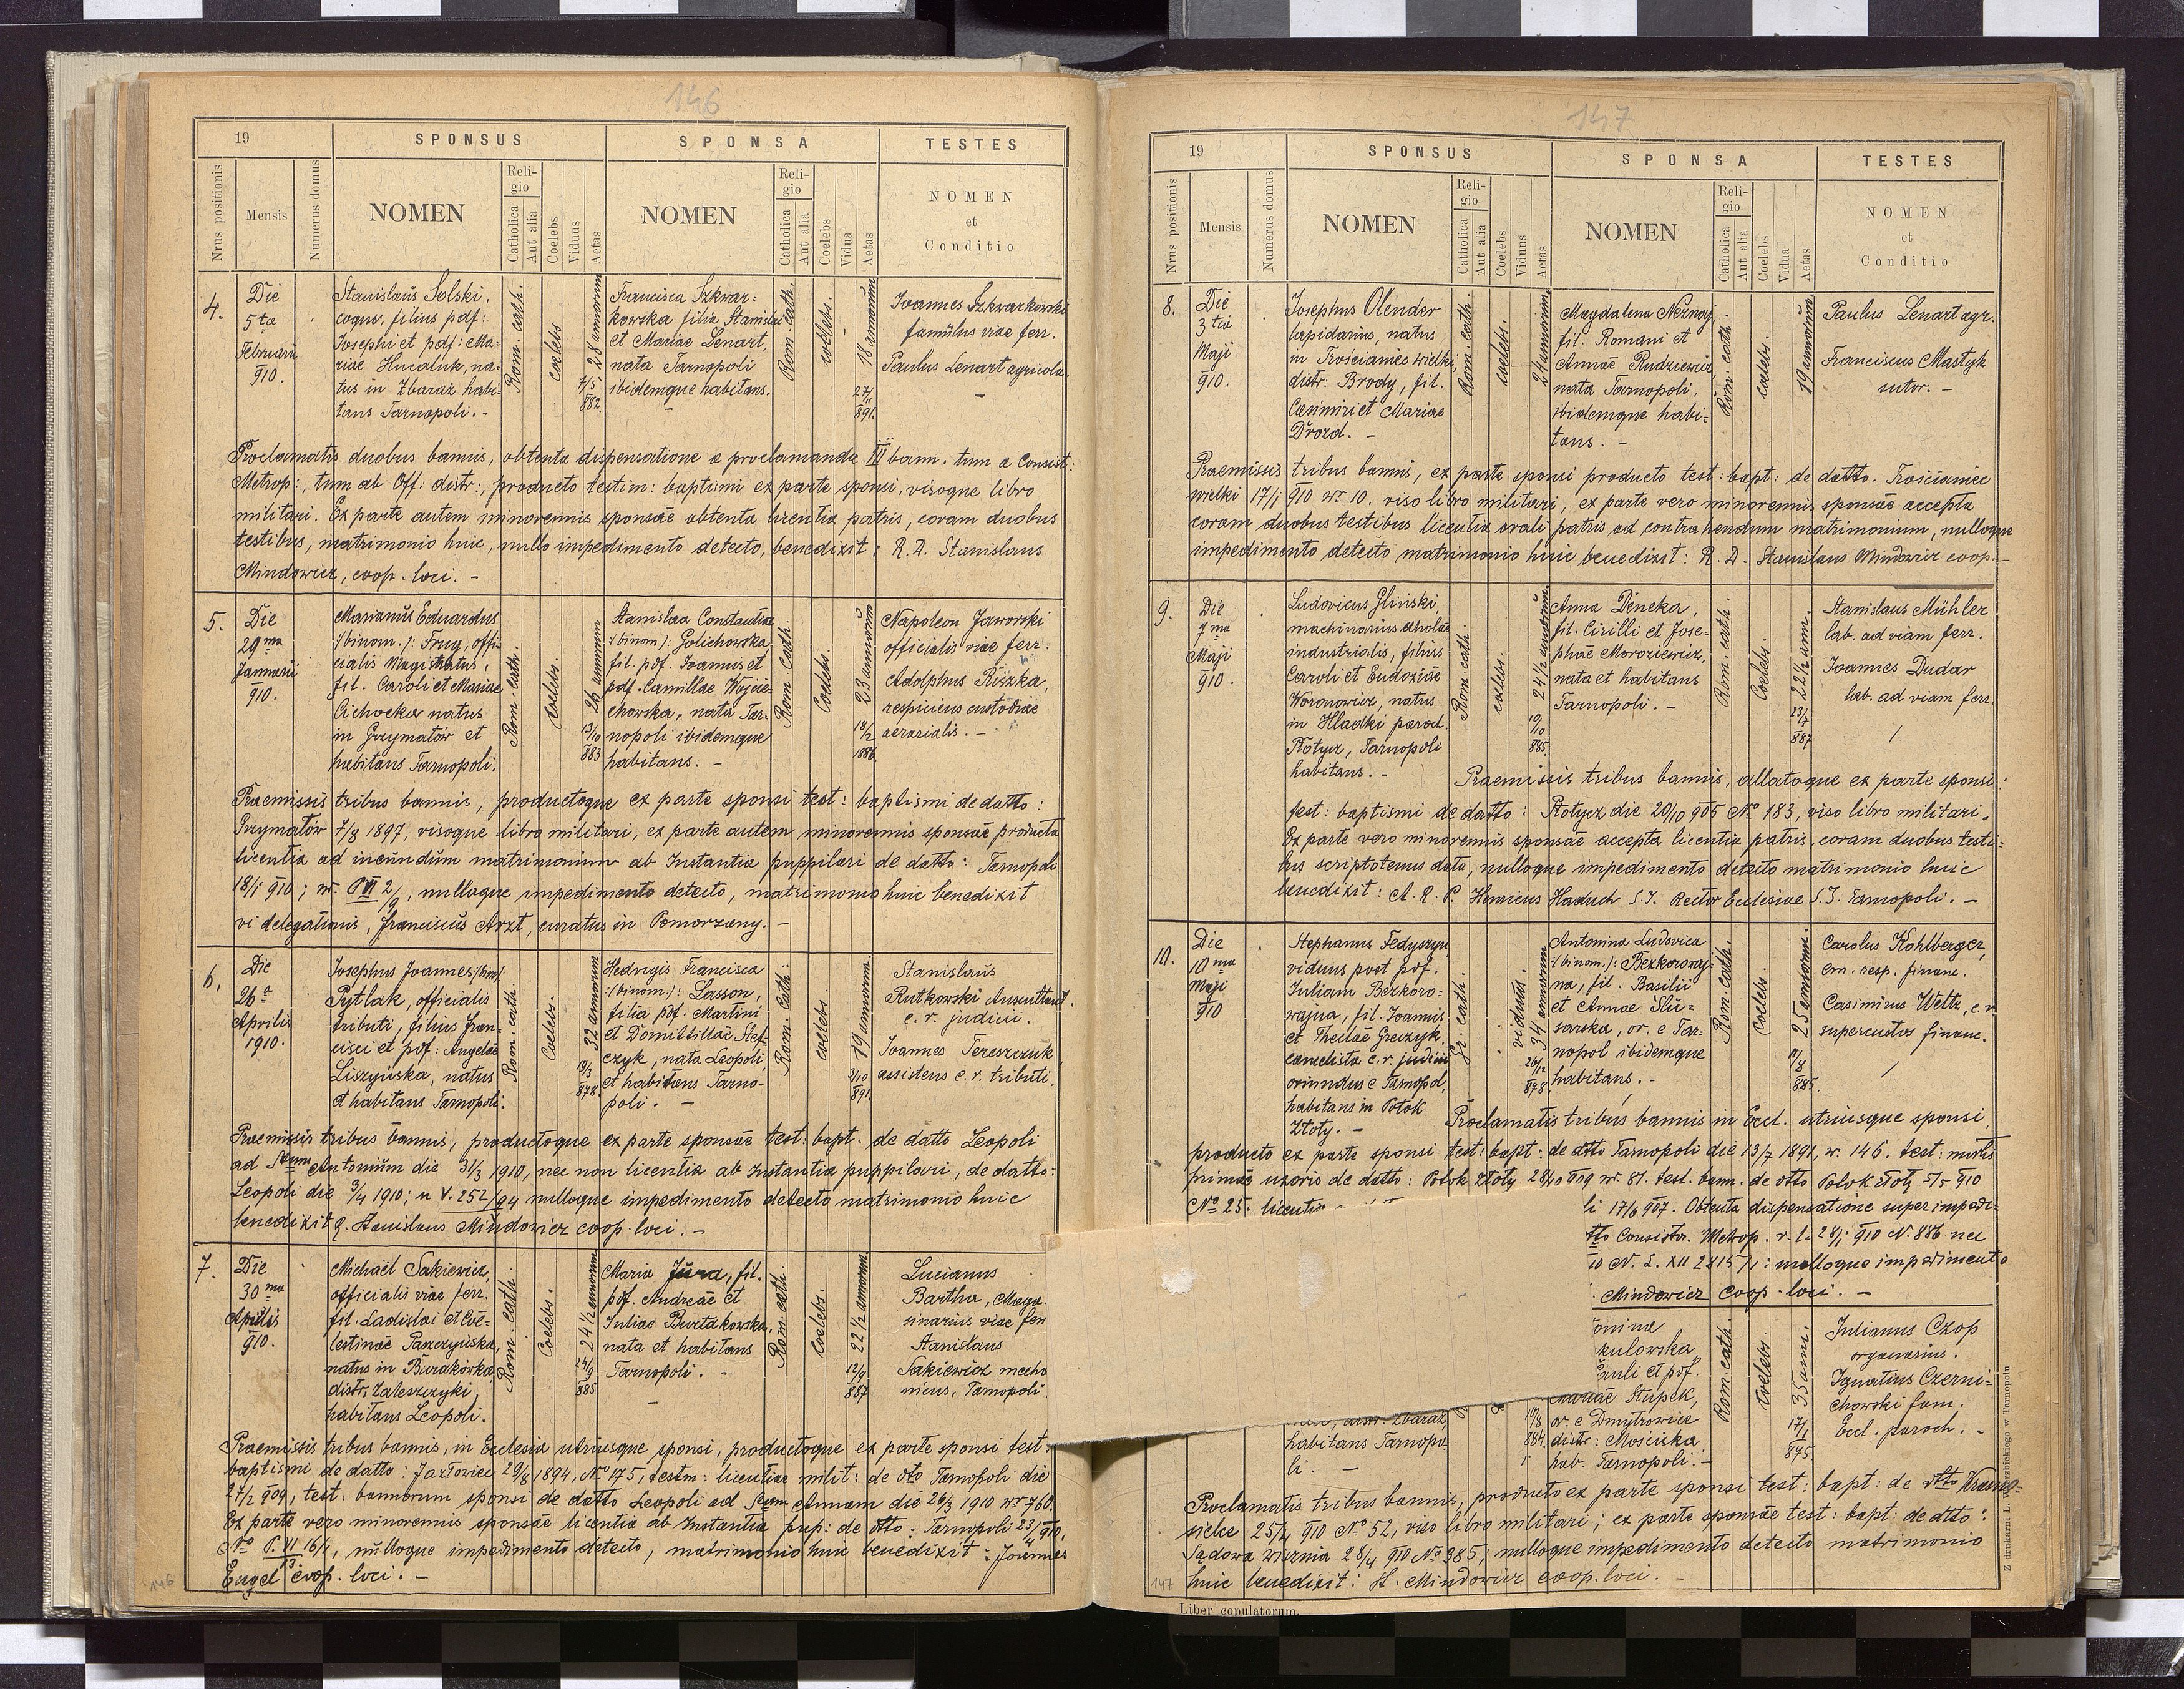 146
19
SPONSUS
SPONSA
TESTES
Nrus positionis
Mensis
Numerus domus
NOMEN
Religio
Catholica
Aut alia
Coelebs
Viduus
Aetas
NOMEN
Religio
Catholica
Aut alia
Coelebs
Vidua
Aetas
NOMEN
et
Conditio
4.
Die
5ta
Februarii
910.
Stanislaus Solski,
coquus, filius pdf:
Josephi et pdf: Ma-
riae Hucaluk, na-
tus in Zbaraż habi-
tans Tarnopoli. -
Rom. cath.
coelebs
28 annorum
7/5
882.
Francisca Szkwar-
kowska filia Stanislai
et Mariae Lenart,
nata Tarnopoli
ibidemque habitans.
Rom. cath.
coelebs.
18 annorum
27/11
891.
Joannes Szkwarkowski
famulus viae ferr.
Paulus Lenart agricola.
Proclamatis duobus bannis, obtenta dispensatione a proclamanda III bann. tum a Consist:
Metrop:, tum ab Off: distr:, producto testim: baptismi ex parte sponsi, visoque libro
militari. Ex parte autem minorennis sponsae obtenta licentia patris, coram duobus
testibus, matrimonio huic, nullo impedimento detecto, benedixit: R. D. Stanislaus
Mindowicz, coop. loci. -
5.
Die
29ma
Januarii
910.
Marianus Eduardus
/:binom.:/ Fruy, offi-
cialis Magistratus,
fil. Caroli et Mariae
Cichocka natus
in Grzymałów et
habitans Tarnopoli.
Rom. cath.
Coelebs.
26 annorum
13/10
883
Stanislaa Constantia
/:binom.:/ Golichowska,
fil. pdf. Joannis et
pdf. Camillae Wojcie-
chowska, nata Tar-
nopoli ibidemque
habitans. -
Rom. Cath.
Coelebs.
23 annorum
18/2
1886.
Napoleon Jaworski
officialis viae ferr.
Adolphus Riszka,
respiciens custodiae
aerarialis. -
Praemissis tribus bannis, productoque ex parte sponsi test: baptismi de datto:
Grzymałów 7/8 1897, visoque libro militari, ex parte autem minorennis sponsae producta
licentia ad ineundum matrimonium ab Instantia puppilari de datto: Tarnopoli
18/1 910; nr. P VI 2/9, nulloque impedimento detecto, matrimonio huic benedixit
vi delegationis, Franciscus Arzt, curatus in Pomorzany. -
6.
Die
26a
Aprilis
1910.
Josephus Joannes /:bin:/
Pytlak, officialis
tributi, filius Fran-
cisci et pdf: Angelae
Liszyńska, natus
et habitans Tarnopoli.
Rom. cath.
Coelebs.
32 annorum
19/3
878.
Hedvigis Francisca
/:binom.:/ Lasson,
filia pdf. Martini
et Domitillae Stef-
czyk, nata Leopoli,
et habitans Tarno-
poli. -
Rom. cath:
coelebs.
19 annorum
3/10
891.
Stanislaus
Rutkowski Auscultant.
c. r. judicii.
Joannes Tereszczuk
assistens c. r. tributi.
Praemissis tribus bannis, productoque ex parte sponsae test: bapt. de datto Leopoli
ad Stum Antonium die 31/3 1910, nec non licentia ab Instantia puppilari, de datto:
Leopoli die 9/4 1910; n V. 252/94 nulloque impedimento detecto matrimonio huic
benedixit Stanislaus Mindowicz coop. loci. -
7.
Die
30ma
Aprilis
910.
Michaël Sakiewicz,
officialis viae ferr.
fil. Ladislai et Coe-
lestinae Paszczyńska,
natus in Burakówka
distr. Zaleszczyki,
habitans Leopoli.
Rom. cath.
Coelebs.
24 1/2 annorum
24/9
885
Maria Jura, fil.
pdf. Andreae et
Juliae Burtakowska,
nata et habitans
Tarnopoli. -
Rom. cath.
Coelebs.
22 1/2 annorum
12/9
887
Lucianus
Bartha, Maga-
sinarius viae ferr
Stanislaus
Sakiewicz mecha
nicus, Tarnopoli.
Praemissis tribus bannis, in Ecclesia utriusque sponsi, productoque ex parte sponsi test:
baptismi de datto: Jazłowiec 29/8 1894, No 175, testm: licentiae milit: de dto Tarnopoli die
27/2 909, test. bannorum sponsi de datto Leopoli ad Stam Annam die 26/3 1910 nr 760.
Ex parte vero minorennis sponsae licentia ab Instantia pup: de dtto: Tarnopoli 23/4 910,
No P. VI 16/1/13, nulloque impedimento detecto, matrimonio huic benedixit: Joannes
Engel coop. loci. -
146
147
19
SPONSUS
SPONSA
TESTES
Nrus positionis
Mensis
Numerus domus
NOMEN
Religio
Catholica
Aut alia
Coelebs
Viduus
Aetas
NOMEN
Religio
Catholica
Aut alia
Coelebs
Vidua
Aetas
NOMEN
et
Conditio
8.
Die
3tia
Maji
910.
Josephus Olender
lapidarius, natus
in Trościaniec wielki,
distr: Brody, fil.
Casimiri et Mariae
Drozd. -
Rom. cath.
coelebs.
24 annorum
Magdalena Neznaj,
fil. Romani et
Annae Rudziewicz
nata Tarnopoli,
ibidemque habi-
tans. -
Rom. cath.
coelebs.
19 annorum
Paulus Lenart agr.
Franciscus Mastyk
sutor. -
Praemissis tribus bannis, ex parte sponsi producto test: bapt: de datto. Trościaniec
wielki 17/1 910 nr 10. viso libro militari, ex parte vero minorennis sponsae accepta
coram duobus testibus licentia orali patris ad contrahendum matrimonium, nulloque
impedimento detecto matrimonio huic benedixit: R. D. Stanislaus Mindowicz coop. -
9.
Die
7ma
Maji
910.
Ludovicus Gliński,
machinarius scholae
industrialis, filius
Caroli et Eudoxiae
Woronowicz, natus
in Hladki paroch.
Płotycz, Tarnopoli
habitans. -
Rom. cath.
coelebs.
24 1/2 annorum
19/10
885.
Anna Deneka,
fil. Cirilli et Jose-
phae Moroziewicz,
nata et habitans
Tarnopoli. -
Rom. cath.
Coelebs.
22 1/2 ann.
23/7
887
Stanislaus Mühler
lab. ad viam ferr.
Joannes Dudar
lab. ad viam ferr.
Praemissis tribus bannis, allatoque ex parte sponsi:
test: baptismi de datto: Płotycz die 20/10 905 No 183, viso libro militari.
Ex parte vero minorennis sponsae accepta licentia patris, coram duobus testi-
bus scriptotenus data, nulloque impedimento detecto matrimonio huic
benedixit: A. R. P. Henricus Haduch S. J. Rector Ecclesiae S. J. Tarnopoli. -
10.
Die
10ma
Maji
910
Stephanus Fedyszyn,
viduus post pdf.
Juliam Bezkoro-
wajna, fil. Joannis
et Theclae Greczyk
cancelista c. r. judicii
oriundus e Tarnopol,
habitans in Potok
Złoty. -
Gr. cath.
viduus.
34 annorum
26/12
878
Antonina Ludovica
/:binom.:/ Bezkoroway-
na, fil. Basilii
et Annae Slu-
sarska, or. e Tar-
nopol ibidemque
habitans. -
Rom. cath.
Coelebs.
25 annorum.
19/8
885.
Carolus Kohlberger,
em. resp. financ.
Casimirus Weltz, c. r.
supercustos financ.
Proclamatis tribus bannis in Eccl. utriusque sponsi,
producto ex parte sponsi test: bapt: de dtto Tarnopoli die 13/7 1891, nr. 146. test: mortis
primae uxoris de datto: Potok Złoty 28/10 909 nr. 81. test. bann. de dtto Potok złoty 5/5 910
No 25. licentia
li 17/6 907. Obtenta dispensatione super impedi-
tto Consistr. Metrop. r. l. 28/1 910 N. 886 nec
10 N. L. XII 2815/1: nulloque impedimento
Mindowicz coop. loci. -
habitans Tarnopo-
li. -
19/8
884.
onina
kulowska
auli et pdf.
Stupek,
or. e Dmytrowice
distr: Mościska
hab. Tarnopoli. -
Rom. cath.
Coelebs.
35 ann.
17/1
875.
Julianus Czop
organarius.
Ignatius Czerni-
chowski fam.
Eccl. paroch. -
Proclamatis tribus bannis, producto ex parte sponsi test: bapt: de dtto Krasno-
sielce 25/4 910 No 52, viso libro militari; ex parte sponsae test: bapt: de dtto:
Sadowa Wisznia 28/4 910 No 385; nulloque impedimento detecto matrimonio
huic benedixit: St. Mindowicz coop. loci. -
147
Liber copulatorum.
Z drukarni L. Wierzbickiego w Tarnopolu